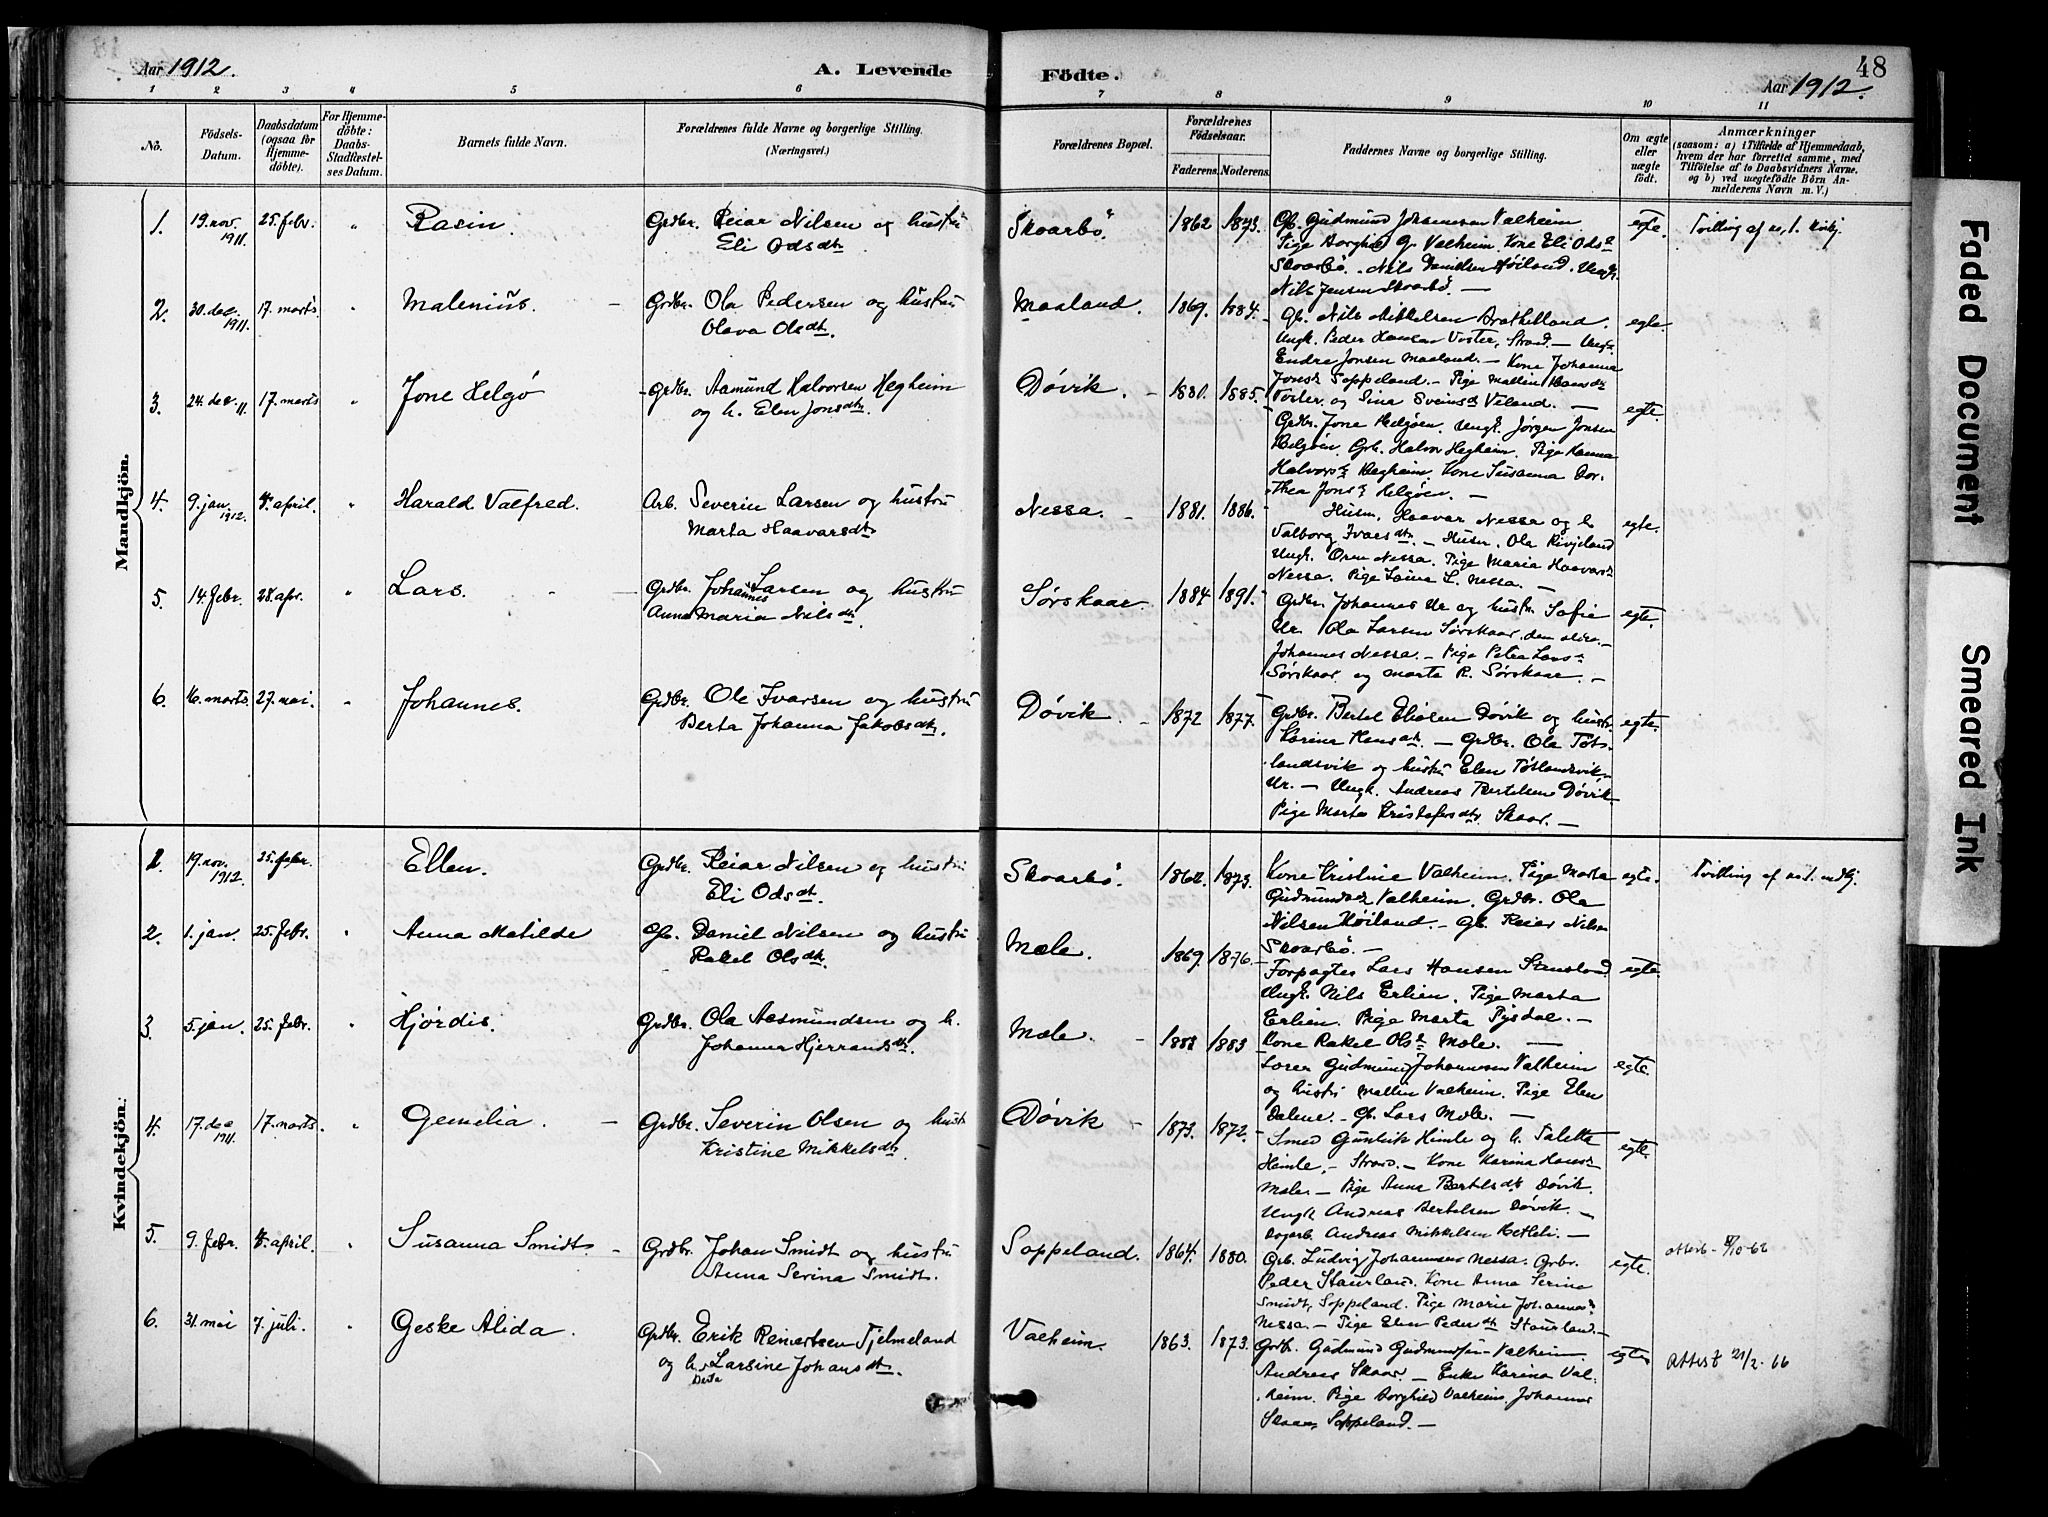 Aar 1912.
A. Levende
Födte.
Aar 1912.
48
1 2 3 4 5 6 7 8 9 10 11
No.
Födsels-
Datum.
Daabsdatum
(ogsaa for
Hjemme-
döbte).
For Hjemme-
döbte:
Daabs-
Stadfæstel-
ses Datum.
Barnets fulde Navn.
Forældrenes fulde Navne og borgerlige Stilling.
(Næringsvei.)
Forældrenes Bopæl.
Forældrenes
Födselsaar.
Faderens. Moderens.
Faddernes Navne og borgerlige Stilling.
Om ægte
eller
uægte
födt.
Anmærkninger
(saasom: a) i Tilfælde af Hjemmedaab,
hvem der har forrettet samme, med
Tilföielse af to Daabsvidners Navne,
og b) ved uægtefödte Börn An-
melderens Navn m. V.)
Mandkjön.
1. 19. nov. 1911. 25. febr. " Rasin. Grdbr. Reiar Nilsen og hustru
Eli Odsdtr.
Skoarbø. 1862 1873.
Gb. Gudmund Johannesen Valheim
Pige Borghild G. Valheim, Kone Eli Ods
Skoarbø. Nils Danielsen Høiland. Ungk.
Nils Jensen Skoarbø. —
egte. Tvilling af no. 1. kvkj.
2. 30. dec. 1911. 17. marts. " Malenius. Grdbr. Ola Pedersen og hustru
Olava Olsdtr
Maaland 1869. 1884.
Gb. Nils Mikkelsen
Ungk. Peder Hansen Voster, Strand — Ungk.
Endre Jonsen Maaland. — Kone Johanna
Jons Soppeland. — Pige Mallin Hansdtr
Voster og Sina Sveins Veland. —
egte.
3. 24. dec. 11. 17. marts " Jone Helgø Grdbr. Aamund Halvorsen Hegheim
og h. Elen Jonsdtr.
Døvik. 1880. 1885.
Grdbr. Jone Helgøen. Ungk. Jørgen Jonsen
Helgøen. Grb. Halvor Hegheim. Pige Hanna
Halvors Hegheim. Kone Susanna Dor-
thea Jons Helgøen. —
egte.
4. 9. jan. 1912. 8. april. " Harald Valfred. Arb. Severin Larsen og hustru
Marta Haavarsdtr
Nessa. 1881. 1886.
Husm. Haavar Nessa og h.
Valborg Ivarsdtr. — Husm. Ola Rivjeland
Ungk. Oren Nessa. Pige Maria Haavars
Nessa. Pige Laina L. Nessa. —
egte.
5. 14. febr. 28. apr. " Lars. Grdbr. Johannes Larsen og hustru
Anna Maria Nilsdtr.
Sørskaar. 1884 1891.
Grdbr. Johannes Ur og hustru Sofie
Ur. Ola Larsen Sørskaar, den aldre.
Johannes Nessa. — Pige Petra Lars
Sørskaar og Marta R. Sørskaar. —
egte.
6. 16. marts. 27. mai. " Johannes. Grdbr. Ole Ivarsen og hustru
Berta Johanna Jakobsdtr.
Døvik. 1872 1877.
Grdbr. Bertel Eliasen Døvik og hustr.
Karina Hansdtr. — Grdbr. Ola Tøt-
landsvik og hustru Elen Tøtlandsvik
Ur. — Ungk. Andreas Bertelsen Døvik
Pige Marta Kristofersdtr. Skaar. —
egte.
Kvindekjön.
1. 19. nov. 1912. 25. febr. Ellen. Grdbr. Reiar Nilsen og hustru
Eli Odsdtr.
Skoarbø. 1862. 1873.
Kone Kristine Valheim. Pige Marta
Gudmunds Valheim. Grdbr. Ola
Nilsen Høiland. — Gb. Reier Nilsen
Skoarbø. —
egte. Tvilling af no 1. mdkj.
2. 1. jan. 25. febr. " Anna Matilde Gb. Daniel Nilsen og hustru
Rakel Olsdtr.
Mæle. 1869. 1876.
Forpagter Lars Hansen
Ungk. Nils Erlien. Pige Marta
Erlien. Pige Marta Tysdal. —
Kone Rakel Ols Mæle. —
egte.
3. 5. jan. 25. febr. " Hjørdis. Grdbr. Ola Aasmundsen og h.
Johanna Hjerrandsdtr.
Mæle. 1883
Gudmund Johannesen Valheim
og hustru Mallin Valheim. Pige Elen
Dalene. — Gb. Lars Mæle. —
egte.
4. 17. dec 1911. 17. marts. " Gemelia. Grdbr. Severin Olsen og hustr
Kristine Mikkelsdtr.
Døvik 1873. 1872.
Smed Gunleik Himle og h. Taletta
Himle. — Strand. — Kone Karina Hans
Mæle. — Pige Anna Bertelsdtr Døvik.
Ungk Andreas Bertelsen Døvik. —
Dagarb. Andreas Mikkelsen Betleli. —
egte.
5. 9. febr. 8. april. " Susanna Smidt Grdbr. Johan Smidt og hustru
Anna Serina Smidt.
Soppeland. 1864. 1880.
Grb. Ludvig Johannesen Nessa. Grbr.
Peder Staurland. Kone Anna Serine
Smidt, Soppeland. Pige Marie Johannes
Nessa. — Pige Elen Pedersdtr Staurland. —
egte.
6. 31. mai 7. juli. Geske Alida. Grdbr. Erik Reinertsen Tjelmeland
og h. Berta Larsine Johansdtr.
Valheim. 1863. 1873.
Grdb. Gudmund Gudmundsen Valheim.
Andreas Skaar. — Enke Karina Val-
heim. Pige Borghild Valheim. Johannes
Skaar, Soppeland. —
egte Attest 21/2-66
Faded Document
Smeared Ink